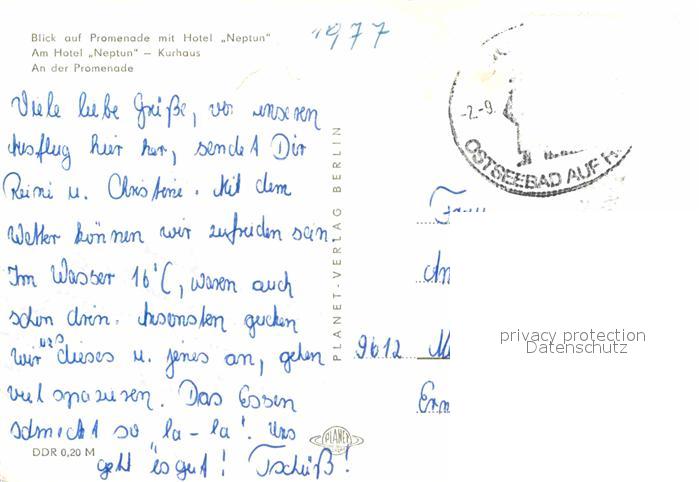 Blick auf Promenade mit Hotel „Neptun"
Am Hotel „Neptun" — Kurhaus
An der Promenade
1977
Viele liebe Grüße, von unseren
Ausflug hier her, sendet Dir
Reini u. Christine. Mit dem
Wetter können wir zufrieden sein.
Im Wasser 16°C, waren auch
schon drin. Ansonsten gucken
wir uns dieses u. jenes an, gehen
viel spazieren. Das Essen
schmeckt so „la-la". Uns
geht es gut! Tschüß!
DDR 0,20 M
PLANET
PLANET-VERLAG BERLIN
-2.-9.
OSTSEEBAD AUF
9612 M
privacy protection
Datenschutz